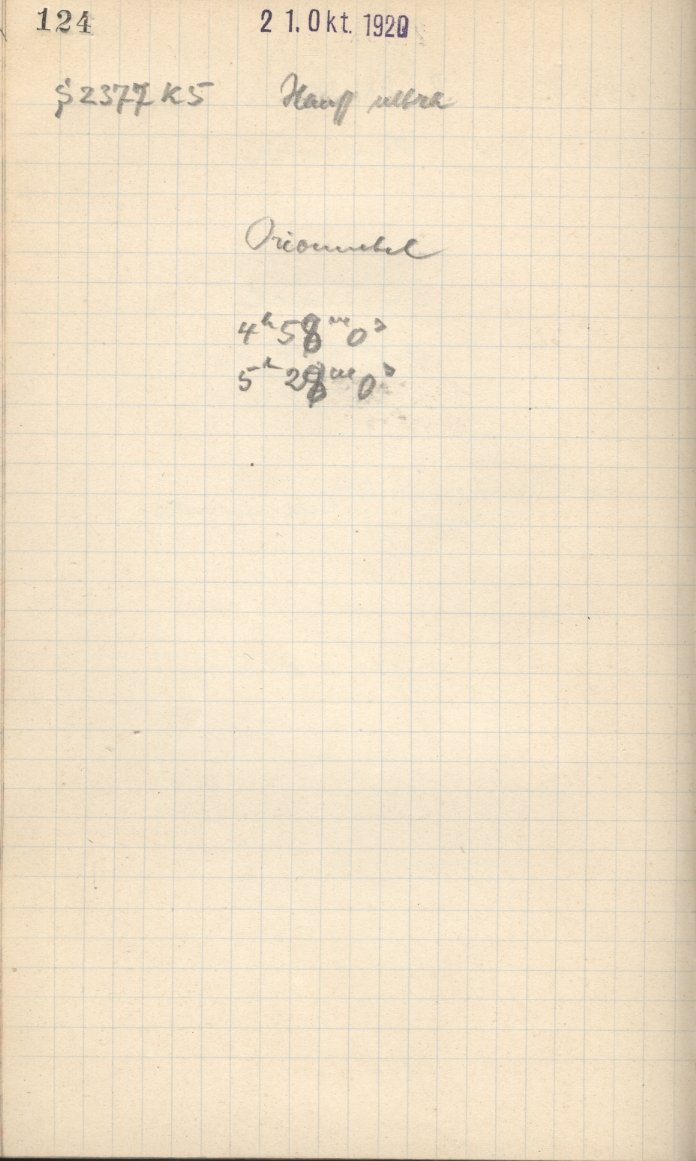 124 21. Okt. 1920
S 2377 K5 Hauff ultra
Orionnebel
4h 58m 0s
5h 28m 0s